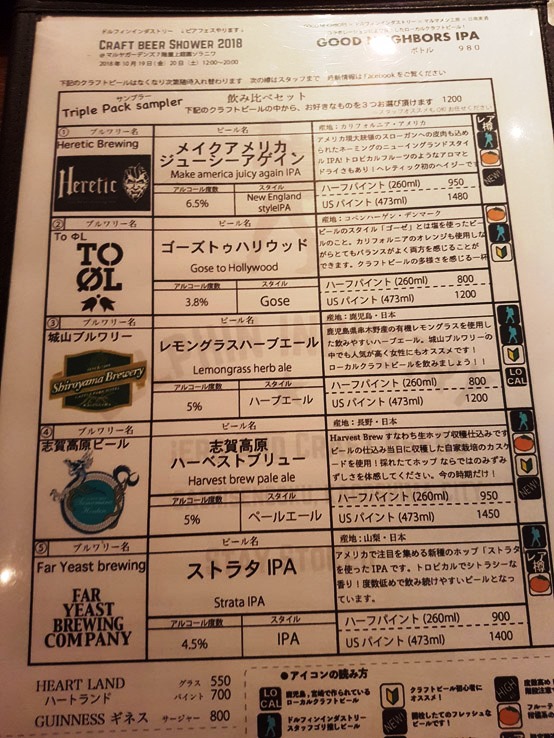 ドルフィンインダストリー
ビアフェスやります
CRAFT BEER SHOWER 2018
@マルヤガーデンズ7階屋上庭園ソラニワ
2018年10月19日(金) 20日(土) 12:00~20:00
GOOD NEIGHBORS IPA
ボトル 980
下記のクラフトビールはなくなり次第随時入れ替わります 次の樽はスタッフまで 最新情報はfacebookをご覧ください
サンプラー
Triple Pack sampler
飲み比べセット
下記のクラフトビールの中から、お好きなものを3つお選び頂けます 1200
① ブルワリー名
Heretic Brewing
Heretic
ビール名
メイクアメリカ
ジューシーアゲイン
Make america juicy again IPA
アルコール度数
6.5%
スタイル
New England
styleIPA
産地:カリフォルニア・アメリカ
アメリカ現大統領のスローガンへの皮肉も込め
られたネーミングのニューイングランドスタイ
ルIPA!トロピカルフルーツのようなアロマと
ドライさもあり!ヘレティック初のヘイジーで
ハーフパイント (260ml) 950
US パイント (473ml) 1480
レア樽
NEW!
② ブルワリー名
To ΦL
TO
ØL
ビール名
ゴーズトゥハリウッド
Gose to Hollywood
アルコール度数
3.8%
スタイル
Gose
産地:コペンハーゲン・デンマーク
ビールのスタイル「ゴーゼ」とは塩を使ったビー
ルのこと。カリフォルニアのオレンジも使用しな
がらとてもバランスがよく両方を感じることが
できます。クラフトビールの多様さを感じる一杯
ハーフパイント (260ml) 800
US パイント (473ml) 1200
③ ブルワリー名
城山ブルワリー
Shiroyama Brewery
ビール名
レモングラスハーブエール
Lemongrass herb ale
アルコール度数
5%
スタイル
ハーブエール
産地:鹿児島・日本
鹿児島県串木野産の有機レモングラスを使用し
た飲みやすいハーブエール。城山ブルワリーの
中でも人気が高く女性にもオススメです!
ローカルクラフトビールを飲みましょう!!
ハーフパイント (260ml) 800
US パイント (473ml) 1200
LO
CAL
④ ブルワリー名
志賀高原ビール
ビール名
志賀高原
ハーベストブリュー
Harvest brew pale ale
アルコール度数
5%
スタイル
ペールエール
産地:長野・日本
Harvest Brew すなわち生ホップ収穫仕込みです
ビールの仕込み当日に収穫した自家栽培のカスケ
ードを使用!採れたてホップ ならではのみずみ
ずしさを体感してください。今の時期だけ!
ハーフパイント (260ml) 950
US パイント (473ml) 1450
NEW!
⑤ ブルワリー名
Far Yeast brewing
FAR
YEAST
BREWING
COMPANY
ビール名
ストラタ IPA
Strata IPA
アルコール度数
4.5%
スタイル
IPA
産地:山梨・日本
アメリカで注目を集める新種のホップ「ストラタ
を使ったIPAです。トロピカルでシトラシーな
香り!度数低めで飲み続けやすいビールとなっ
ています。
ハーフパイント (260ml) 900
US パイント (473ml) 1400
レア樽
HEART LAND
ハートランド
グラス 550
パイント 700
GUINNESS ギネス サージャー 800
●アイコンの読み方
LO
CAL
鹿児島,宮崎で作られている
ローカルクラフトビール
クラフトビール初心者に
オススメ!
HIGH
度数高め!
ドルフィンインダストリー
スタッフゴリ推しビール
NEW!
開栓したてのフレッシュな
ビールです!
フルーテ
柑橘系の